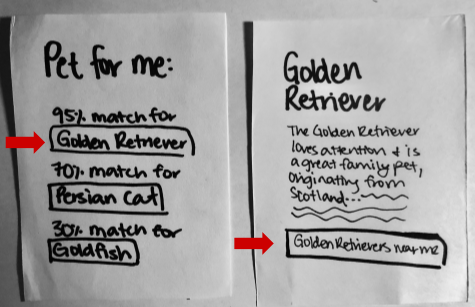 Pet for me:
95% match for
Golden Retriever
70% match for
Persian Cat
30% match for
Goldfish
Golden
Retriever
The Golden Retriever
loves attention & is
a great family pet,
originating from
Scotland...
Golden Retrievers near me